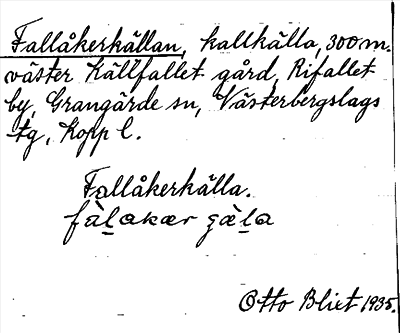 Fallåkerkällan, kallkälla, 300 m.
väster Källfallet gård, Rifallet
by, Grangärde sn, Västerbergslags
tg, Kopp l.
Fallåkerkälla.
Otto Blixt 1935.